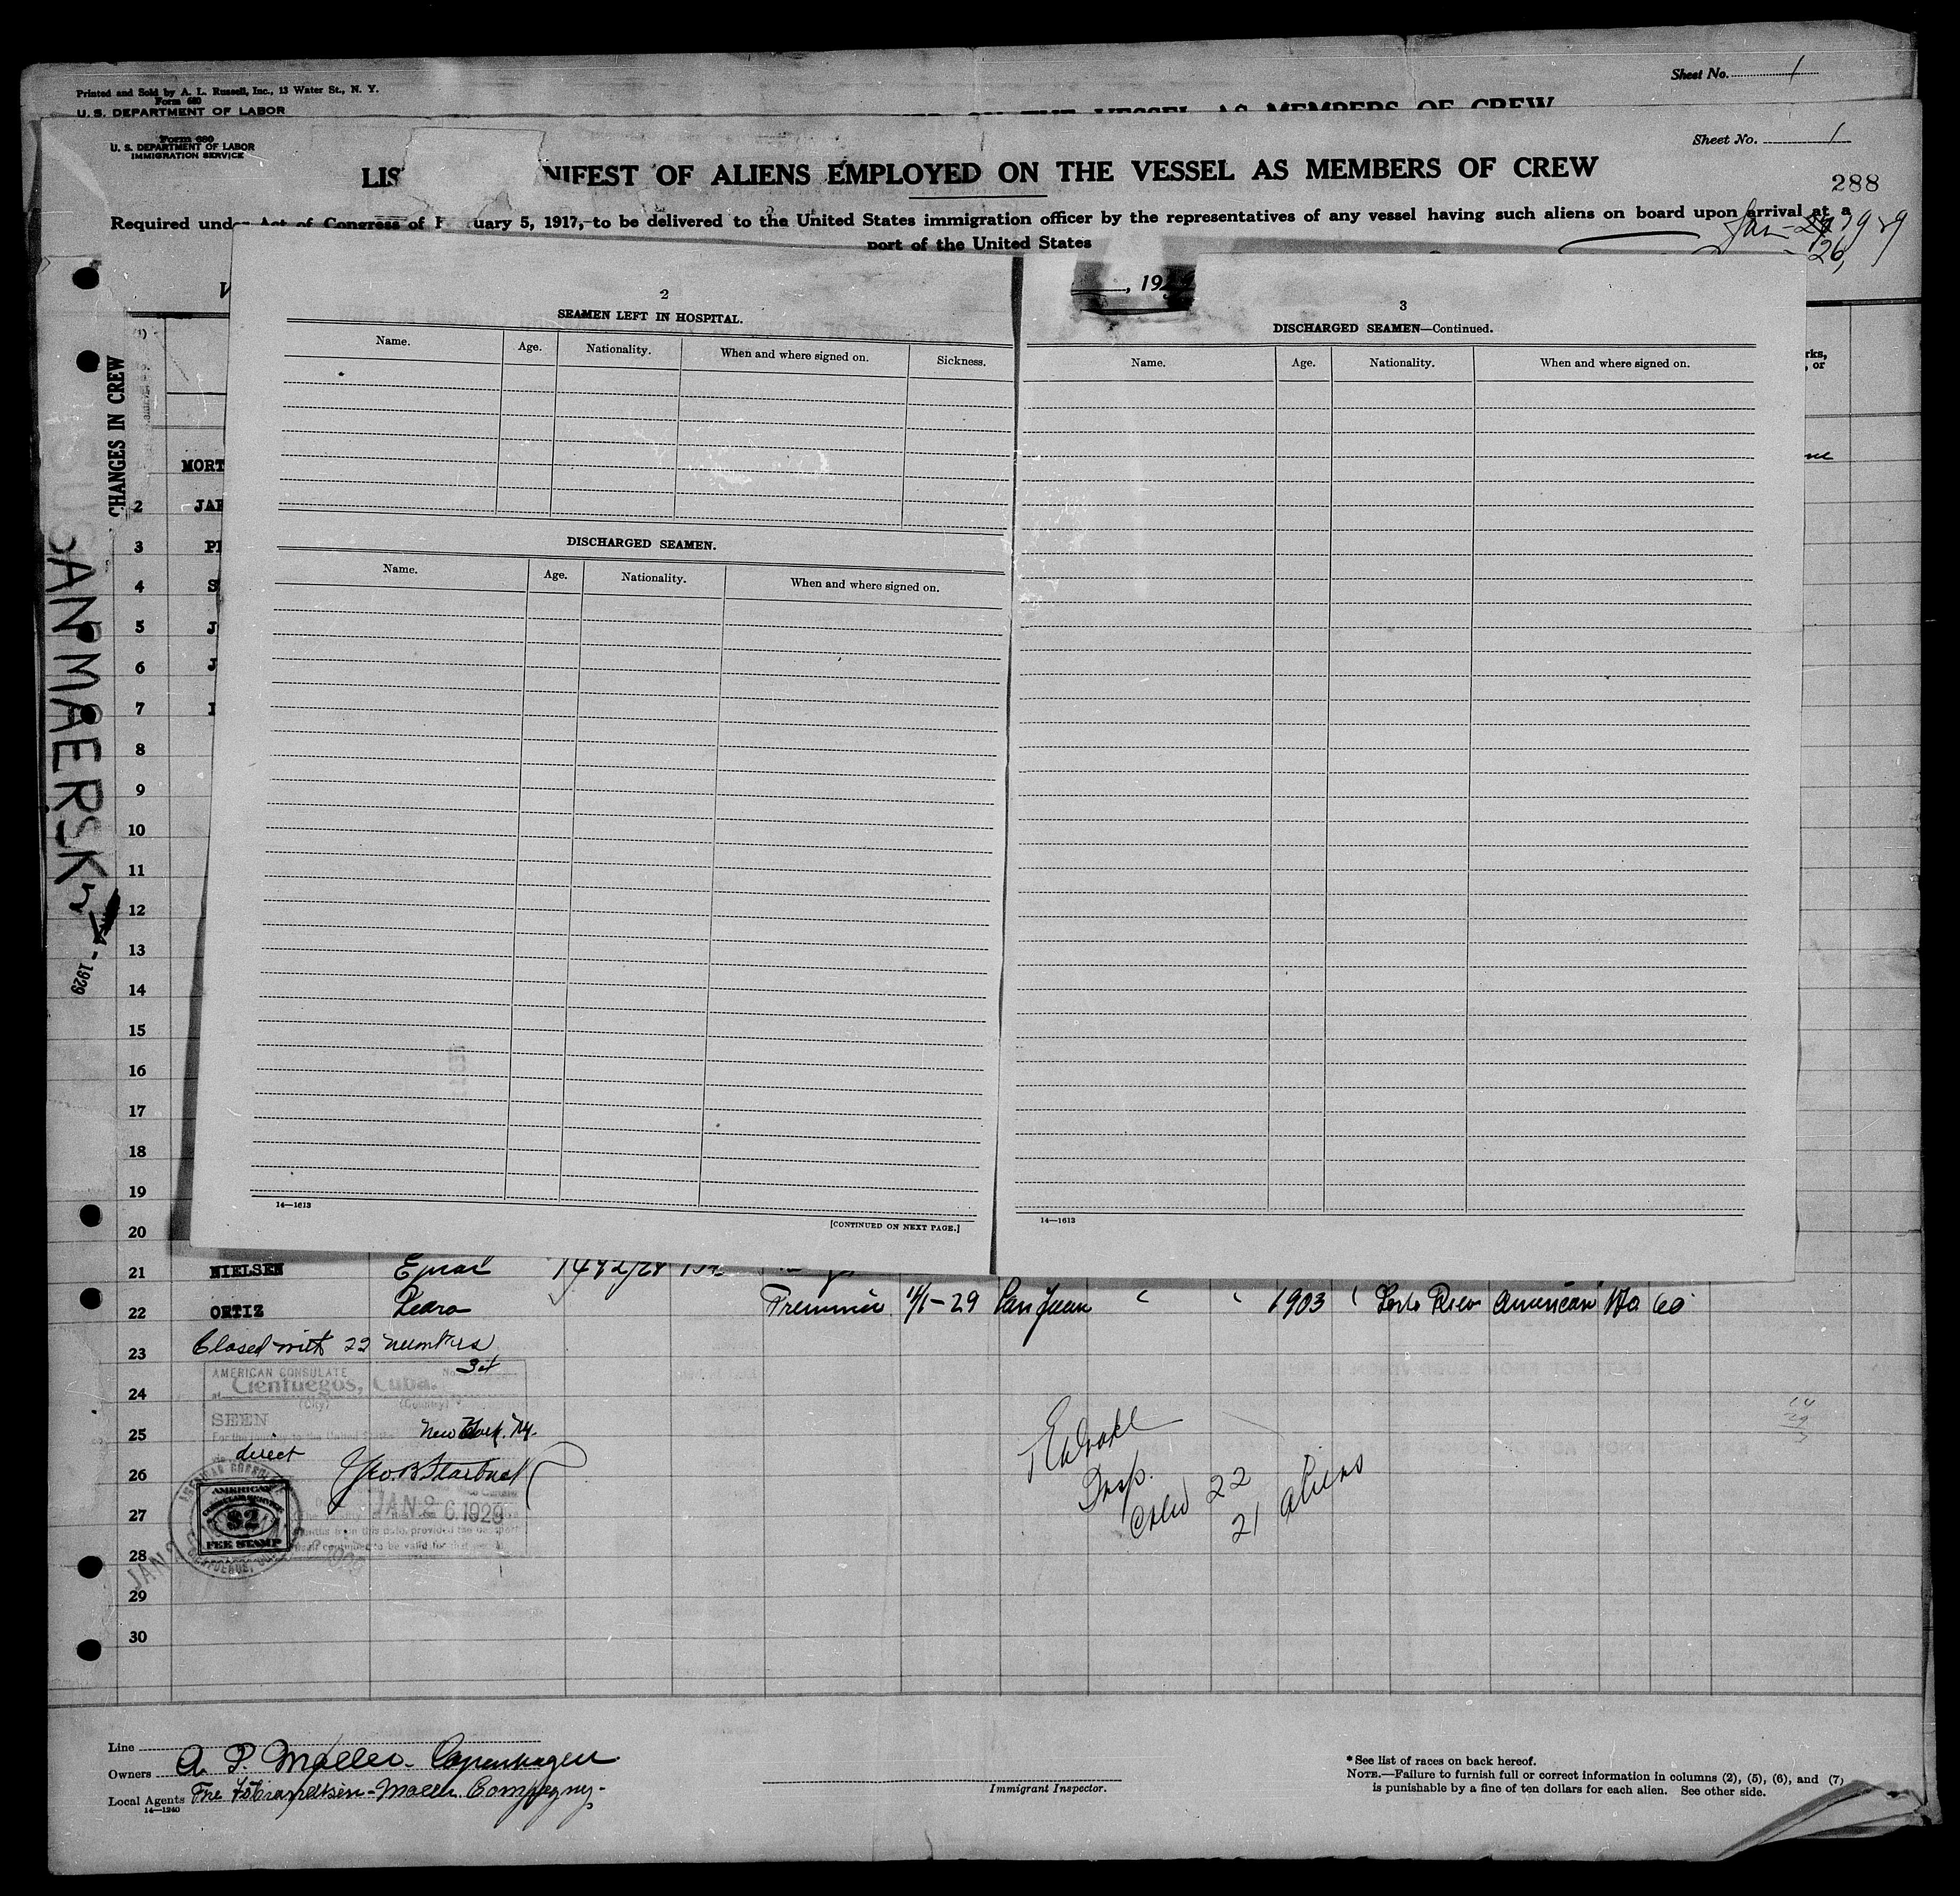 Sheet No. 1
Printed and Sold by A. L. Russell, Inc., 13 Water St., N. Y.
Form 680
U. S. DEPARTMENT OF LABOR
ON THE VESSEL AS MEMBERS OF CREW
Form 680
U. S. DEPARTMENT OF LABOR
IMMIGRATION SERVICE
Sheet No. 1
LIS NIFEST OF ALIENS EMPLOYED ON THE VESSEL AS MEMBERS OF CREW
288
Required under Act of Congress of F ruary 5, 1917, to be delivered to the United States immigration officer by the representatives of any vessel having such aliens on board upon arrival at a
port of the United States
Jan - 1929
26,
, 19
CHANGES IN CREW
DAN MAERSK
- 1929
2
SEAMEN LEFT IN HOSPITAL.
Name. Age. Nationality. When and where signed on. Sickness.
DISCHARGED SEAMEN.
Name. Age. Nationality. When and where signed on.
14—1613
[CONTINUED ON NEXT PAGE.]
3
DISCHARGED SEAMEN—Continued.
Name. Age. Nationality. When and where signed on.
14—1613
rks,
, or
(1)
MORT
2 JAR
3 PE
4 S
5 J
6 J
7
8
9
10
11
12
13
14
15
16
17
18
19
20
21 NIELSEN Ejnar
22 ORTIZ Pedro 11/1-29 San Juan " " 1903 " Porto Rico American No 60
Closed with 22 numbers
23
AMERICAN CONSULATE No.
24
at Cienfuegos, Cuba.
(City) (Country)
SEEN
25
For the journey to the United States
New York. N.Y.
direct
26
Geo. B. Starbuck
27
JAN 26 1929
28
29
30
AMERICAN
CONSULAR SERVICE
$2
FEE STAMP
JAN 2
Insp.
22
21 aliens
Line
Owners A. P. Moller. Copenhagen
Local Agents The Isbrandtsen-Moller Company.
14—1240
Immigrant Inspector.
* See list of races on back hereof.
NOTE.—Failure to furnish full or correct information in columns (2), (5), (6), and (7)
is punishable by a fine of ten dollars for each alien. See other side.